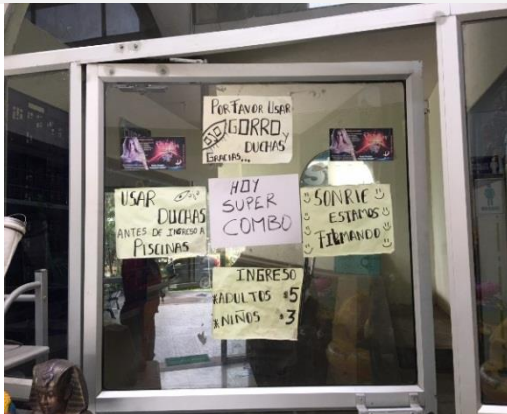 POR FAVOR USAR
GORRO Y
DUCHAS
GRACIAS...
USAR
DUCHAS
ANTES DE INGRESO A
PISCINAS
HOY
SUPER
COMBO
SONRIE
ESTAMOS
FILMANDO
INGRESO
*ADULTOS $5
*NIÑOS $3